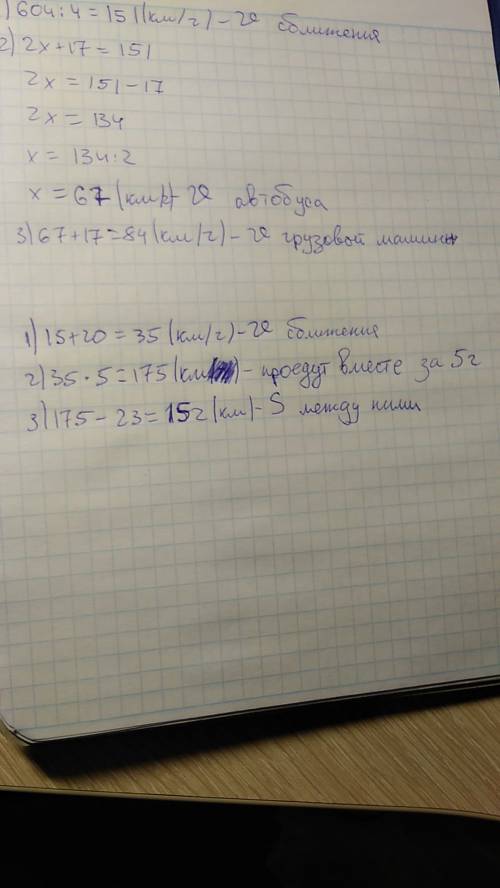 1) 604:4=151(км/ч)-υ сближения
2) 2х+17=151
2х=151-17
2х=134
х=134:2
х=67(км/ч)-υ автобуса
3) 67+17=84(км/ч)-υ грузовой машины
1) 15+20=35(км/ч)-υ сближения
2) 35·5=175(км)-проедут вместе за 5ч
3) 175-23=152(км)-S между ними